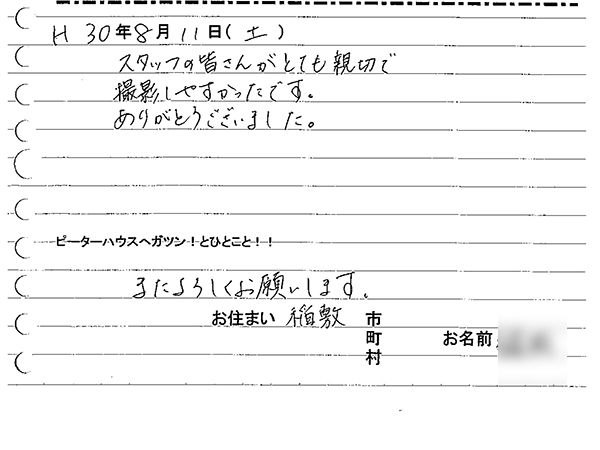 H 30年8月11日(土)
スタッフの皆さんがとても親切で
撮影しやすかったです。
ありがとうございました。
ピーターハウスへガツン!とひとこと!!
またよろしくお願いします。
お住まい 稲敷 市
町 お名前
村